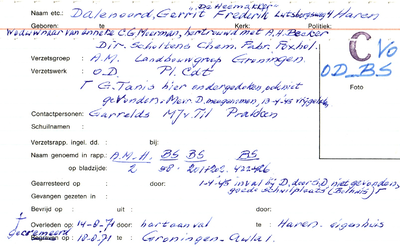 "De Heemakker"
Naam etc.: Dalenoord, Gerrit Frederik Lutsborgsweg 4 Haren
Geboren: te Kerk: Politiek:
Weduwnaar van Anneke C.G. Meerman, hertrouwd met A.H. Becker
Dir. Scholtens Chem. Fabr. Foxhol.
Verzetsgroep : A.M. Landbouwgroep Groningen.
Verzetswerk : O.D. Pl. Cdt
C Vo
O.D._BS
Foto
G. Tanis hier ondergedoken, ook niet
gevonden. Mevr. D. meegenomen, 13-4-45 vrijgelaten
Contactpersonen: Garrelds M.J.v. Til Prakken
Schuilnamen :
Verzetsrapp. ingel. dd. : bij:
Naam genoemd in rapp.: A.M.-11. BS BS BS
op bladzijde : 2
Gearresteerd op : door: 1-4-45 inval bij D. door S.D. niet gevonden,
Gevangen gezeten in : goede schuilplaats
Bevrijd op : uit : door:
Overleden op : 14-8-71 door: hartaanval te : Haren - eigen huis
gecremeerd
op : 18-8-71 te : Groningen -